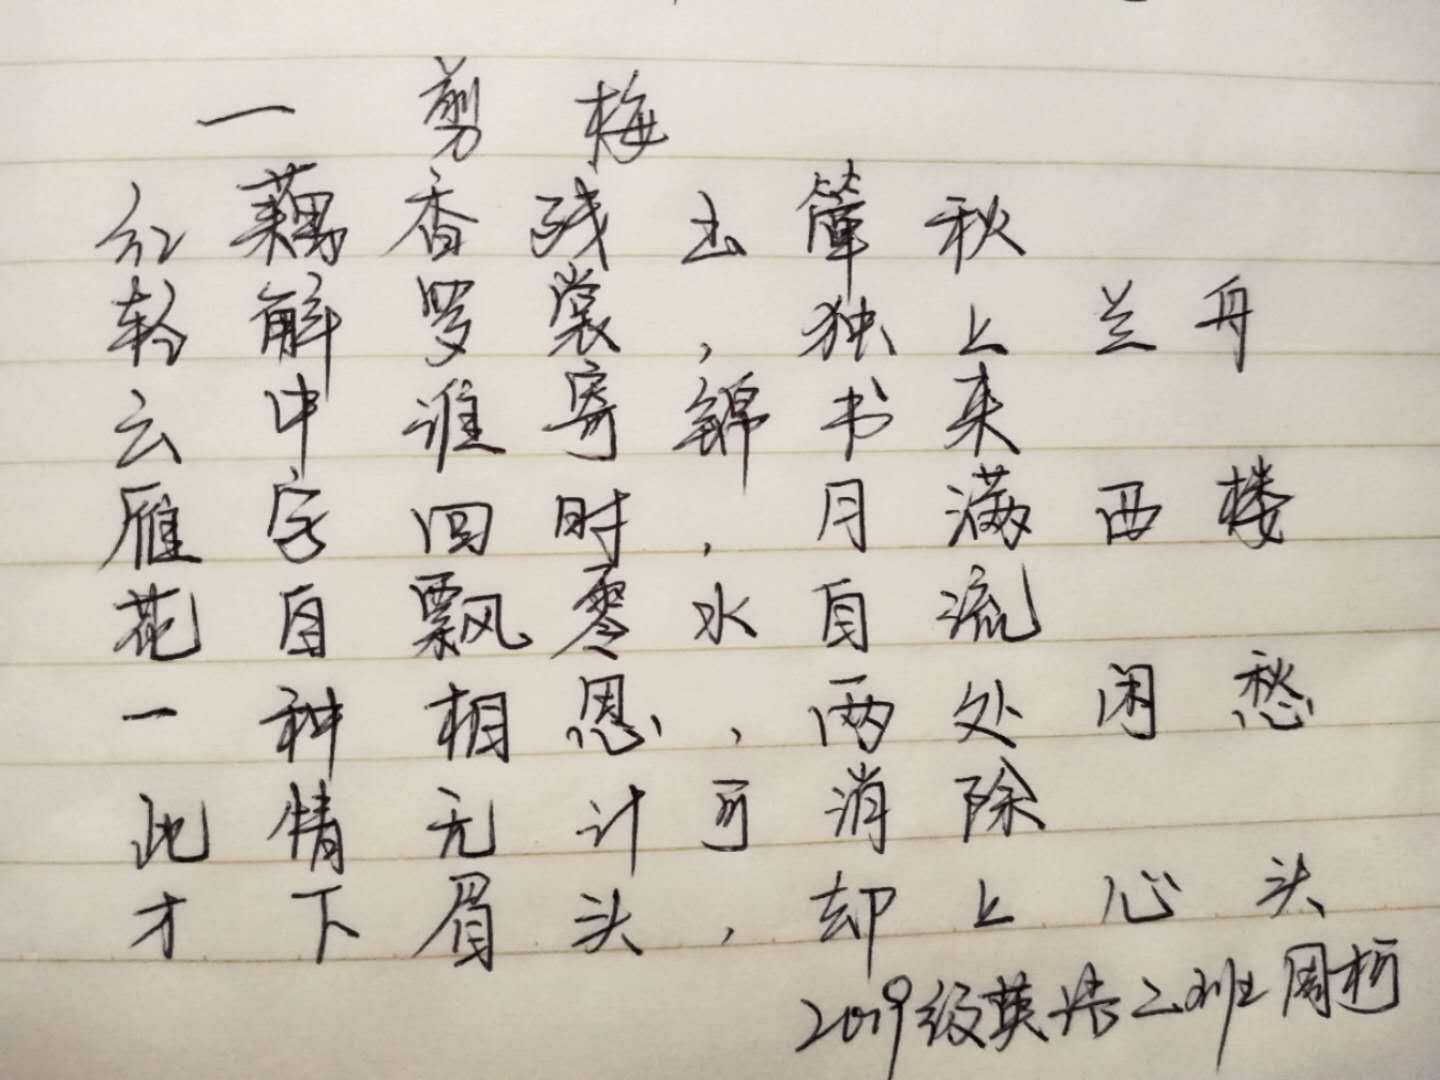 一剪梅
红藕香残玉簟秋
轻解罗裳,独上兰舟
云中谁寄锦书来
雁字回时,月满西楼
花自飘零水自流
一种相思,两处闲愁
此情无计可消除
才下眉头,却上心头
2019级英语二班周柯